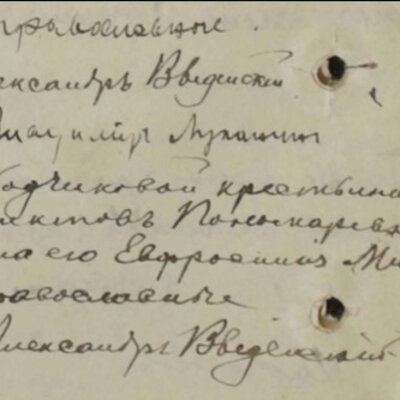 православные.
лександръ Введенскій
ладиміръ Лукашинъ
бодчиковой крестьянин
иктовъ Пономаревъ
на его Евфросинія Ми
равославные
Александръ Введенскій